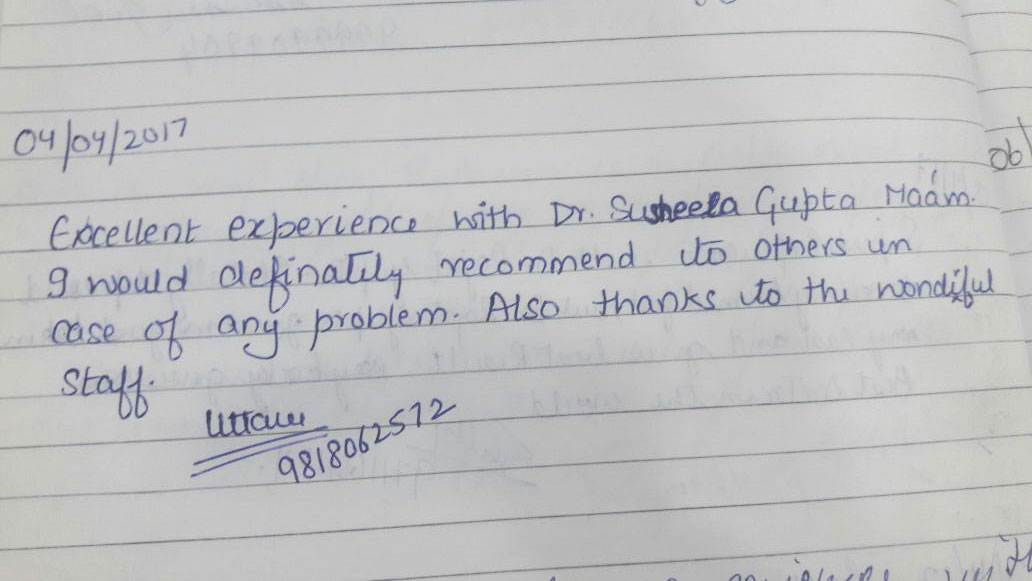 04/04/2017
06
Excellent experience with Dr. Susheela Gupta Maám.
I would definatily recommend to others in
case of any problem. Also thanks to the wondiful
Staff.
9818062572